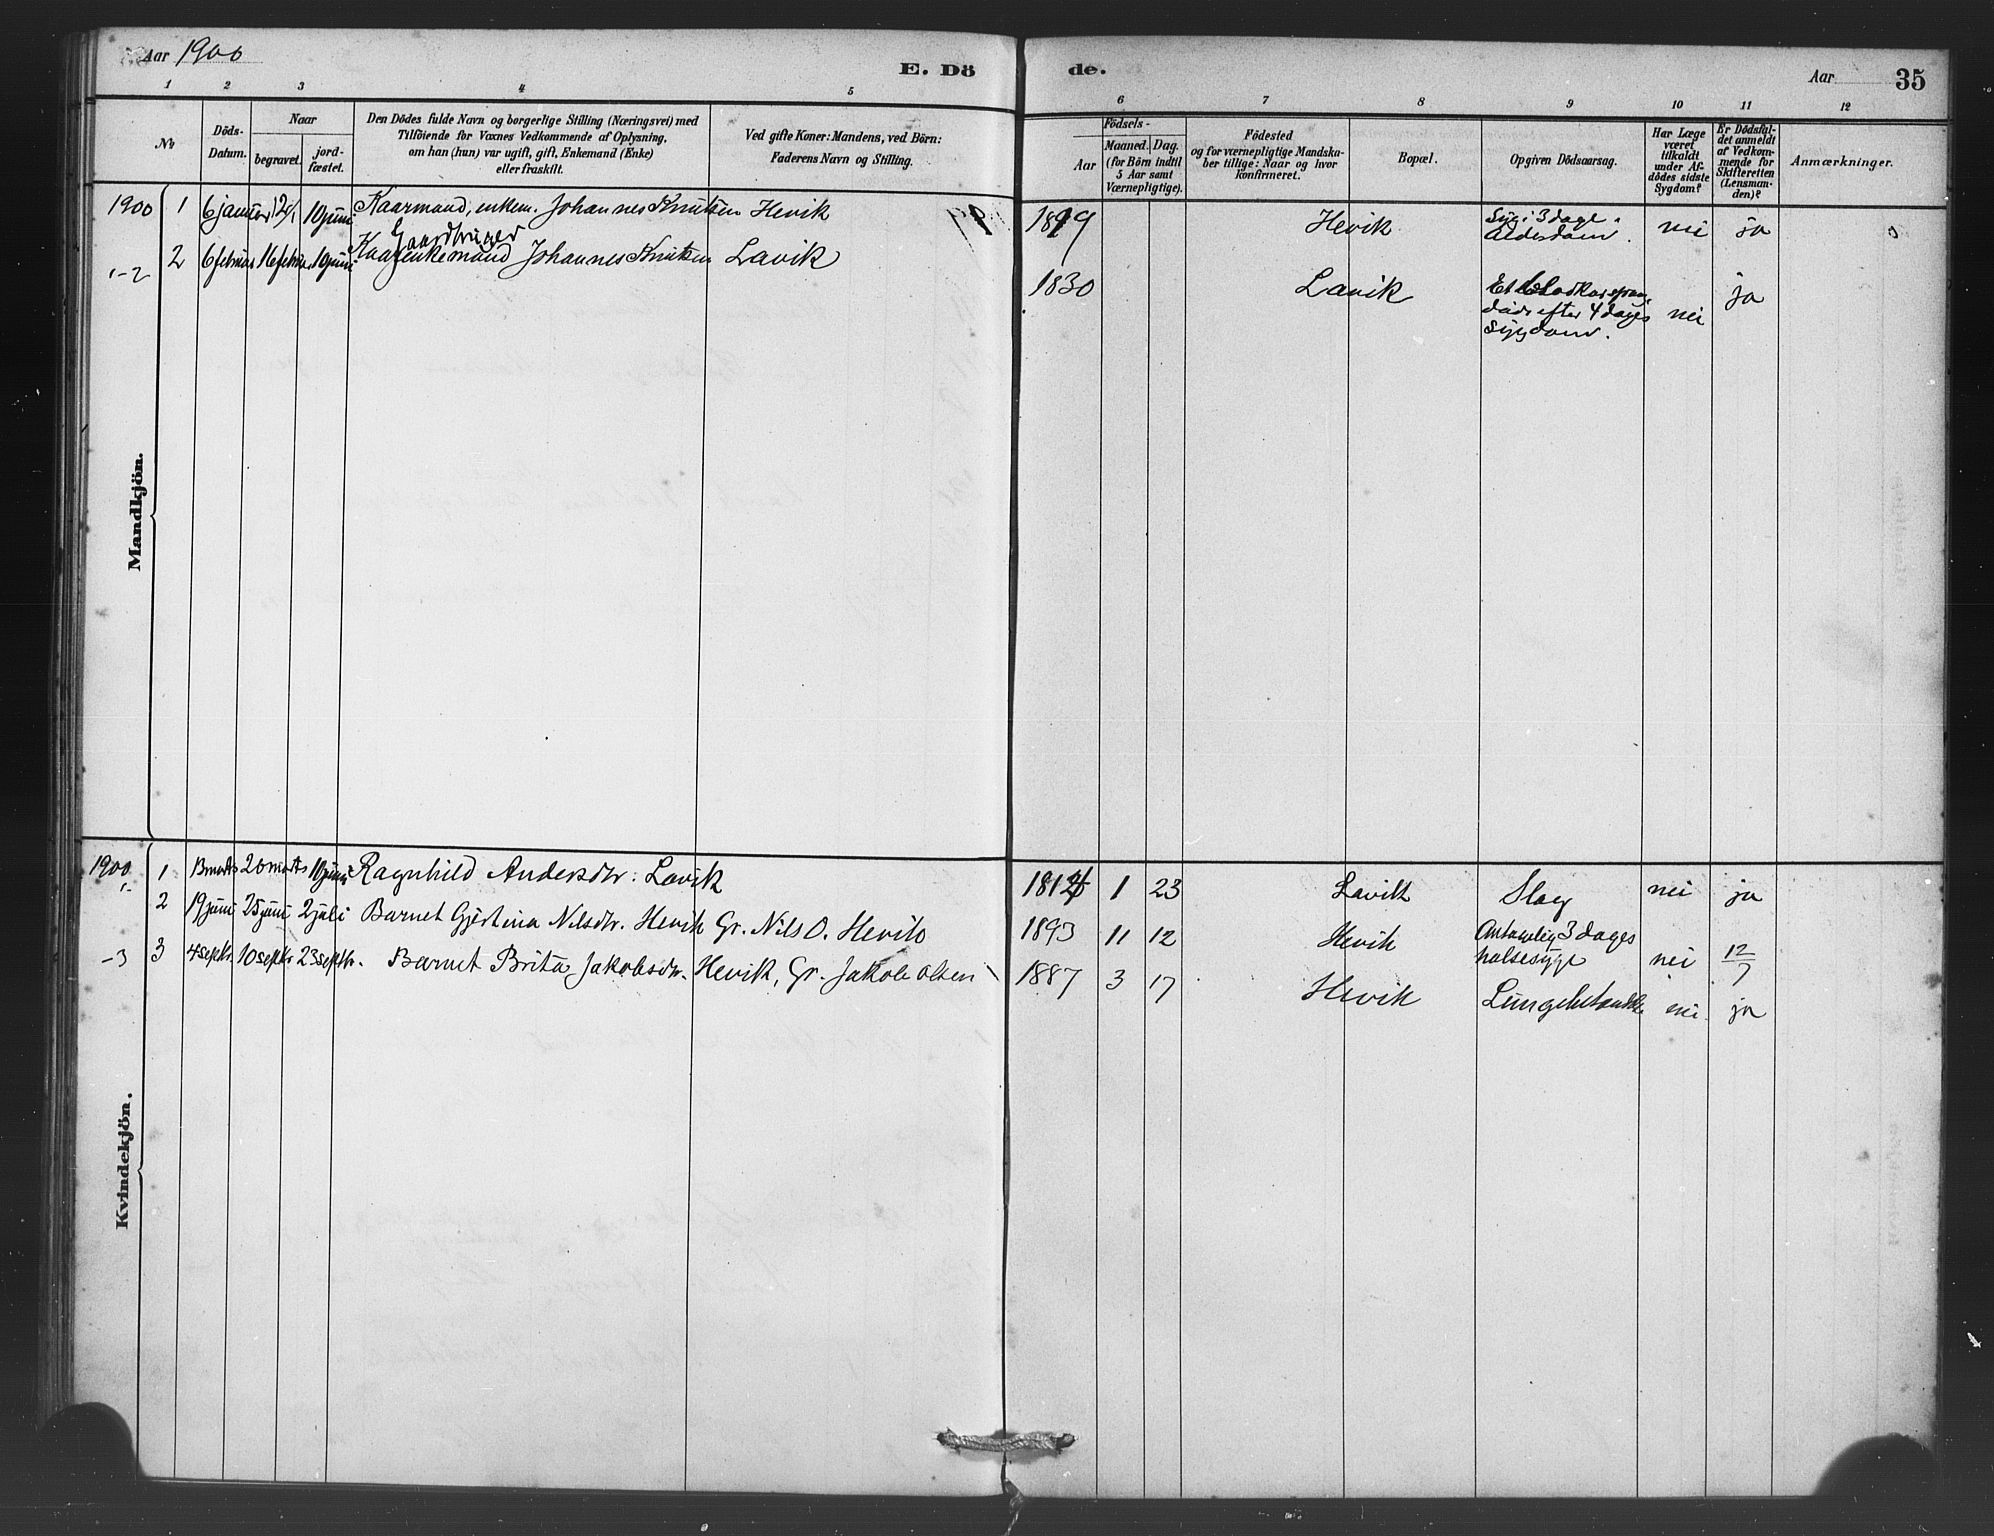 Aar 1900
E. Dö
de.
Aar
35
1 2 3 4 5
6 7 8 9 10 11 12
No
Döds-
Datum.
Naar
begravet.
jord-
fæstet.
Den Dödes fulde Navn og borgerlige Stilling (Næringsvei) med
Tilföiende for Voxnes Vedkommende af Oplysning,
om han (hun) var ugift, gift, Enkemand (Enke)
eller fraskilt.
Ved gifte Koner: Mandens, ved Börn:
Faderens Navn og Stilling.
Födsels-
Aar
Maaned. Dag.
(for Börn indtil
5 Aar samt
Værnepligtige).
Födested
og for værnepligtige Mandska-
ber tillige: Naar og hvor
konfirmeret.
Bopæl.
Opgiven Dödsaarsag.
Har Læge
været
tilkaldt
under Af-
dödes sidste
Sygdom?
Er Dödsfal-
det anmeldt
af Vedkom-
mende for
Skifteretten
(Lensman-
den)?
Anmærkninger.
Mandkjön.
1900 1 6 januar 10 juni Kaarmand, enkem. Johannes Knutsen Hevik
Hevik Syg i 3 dage. nei ja
Alderdom.
Gaardbruger
1-2 2 6 februar 16 februar 10 juni enkemand Johannes Knutsen Lavik
1830 Lavik Et Blodkar sprang ja
döde efter 4 dages nei
sygdom.
Kvindekjön.
1900 1 marts 20 marts 10 juni Ragnhild Andersdtr. Lavik
1 23 Lavik Slag nei ja
2 19 juni 25 juni 2 juli Barnet Gjertina Nilsdtr. Hevik Gr. Nils O. Hevik
1893 11 12 Hevik 3 dages
halsesyge nei 12/7
-3 3 4 septbr. 10 septbr. 23 septbr. Barnet Brita Jakobsdtr. Hevik, Gr. Jakob Olsen
1887 3 17 Hevik Lungebetændelse nei ja